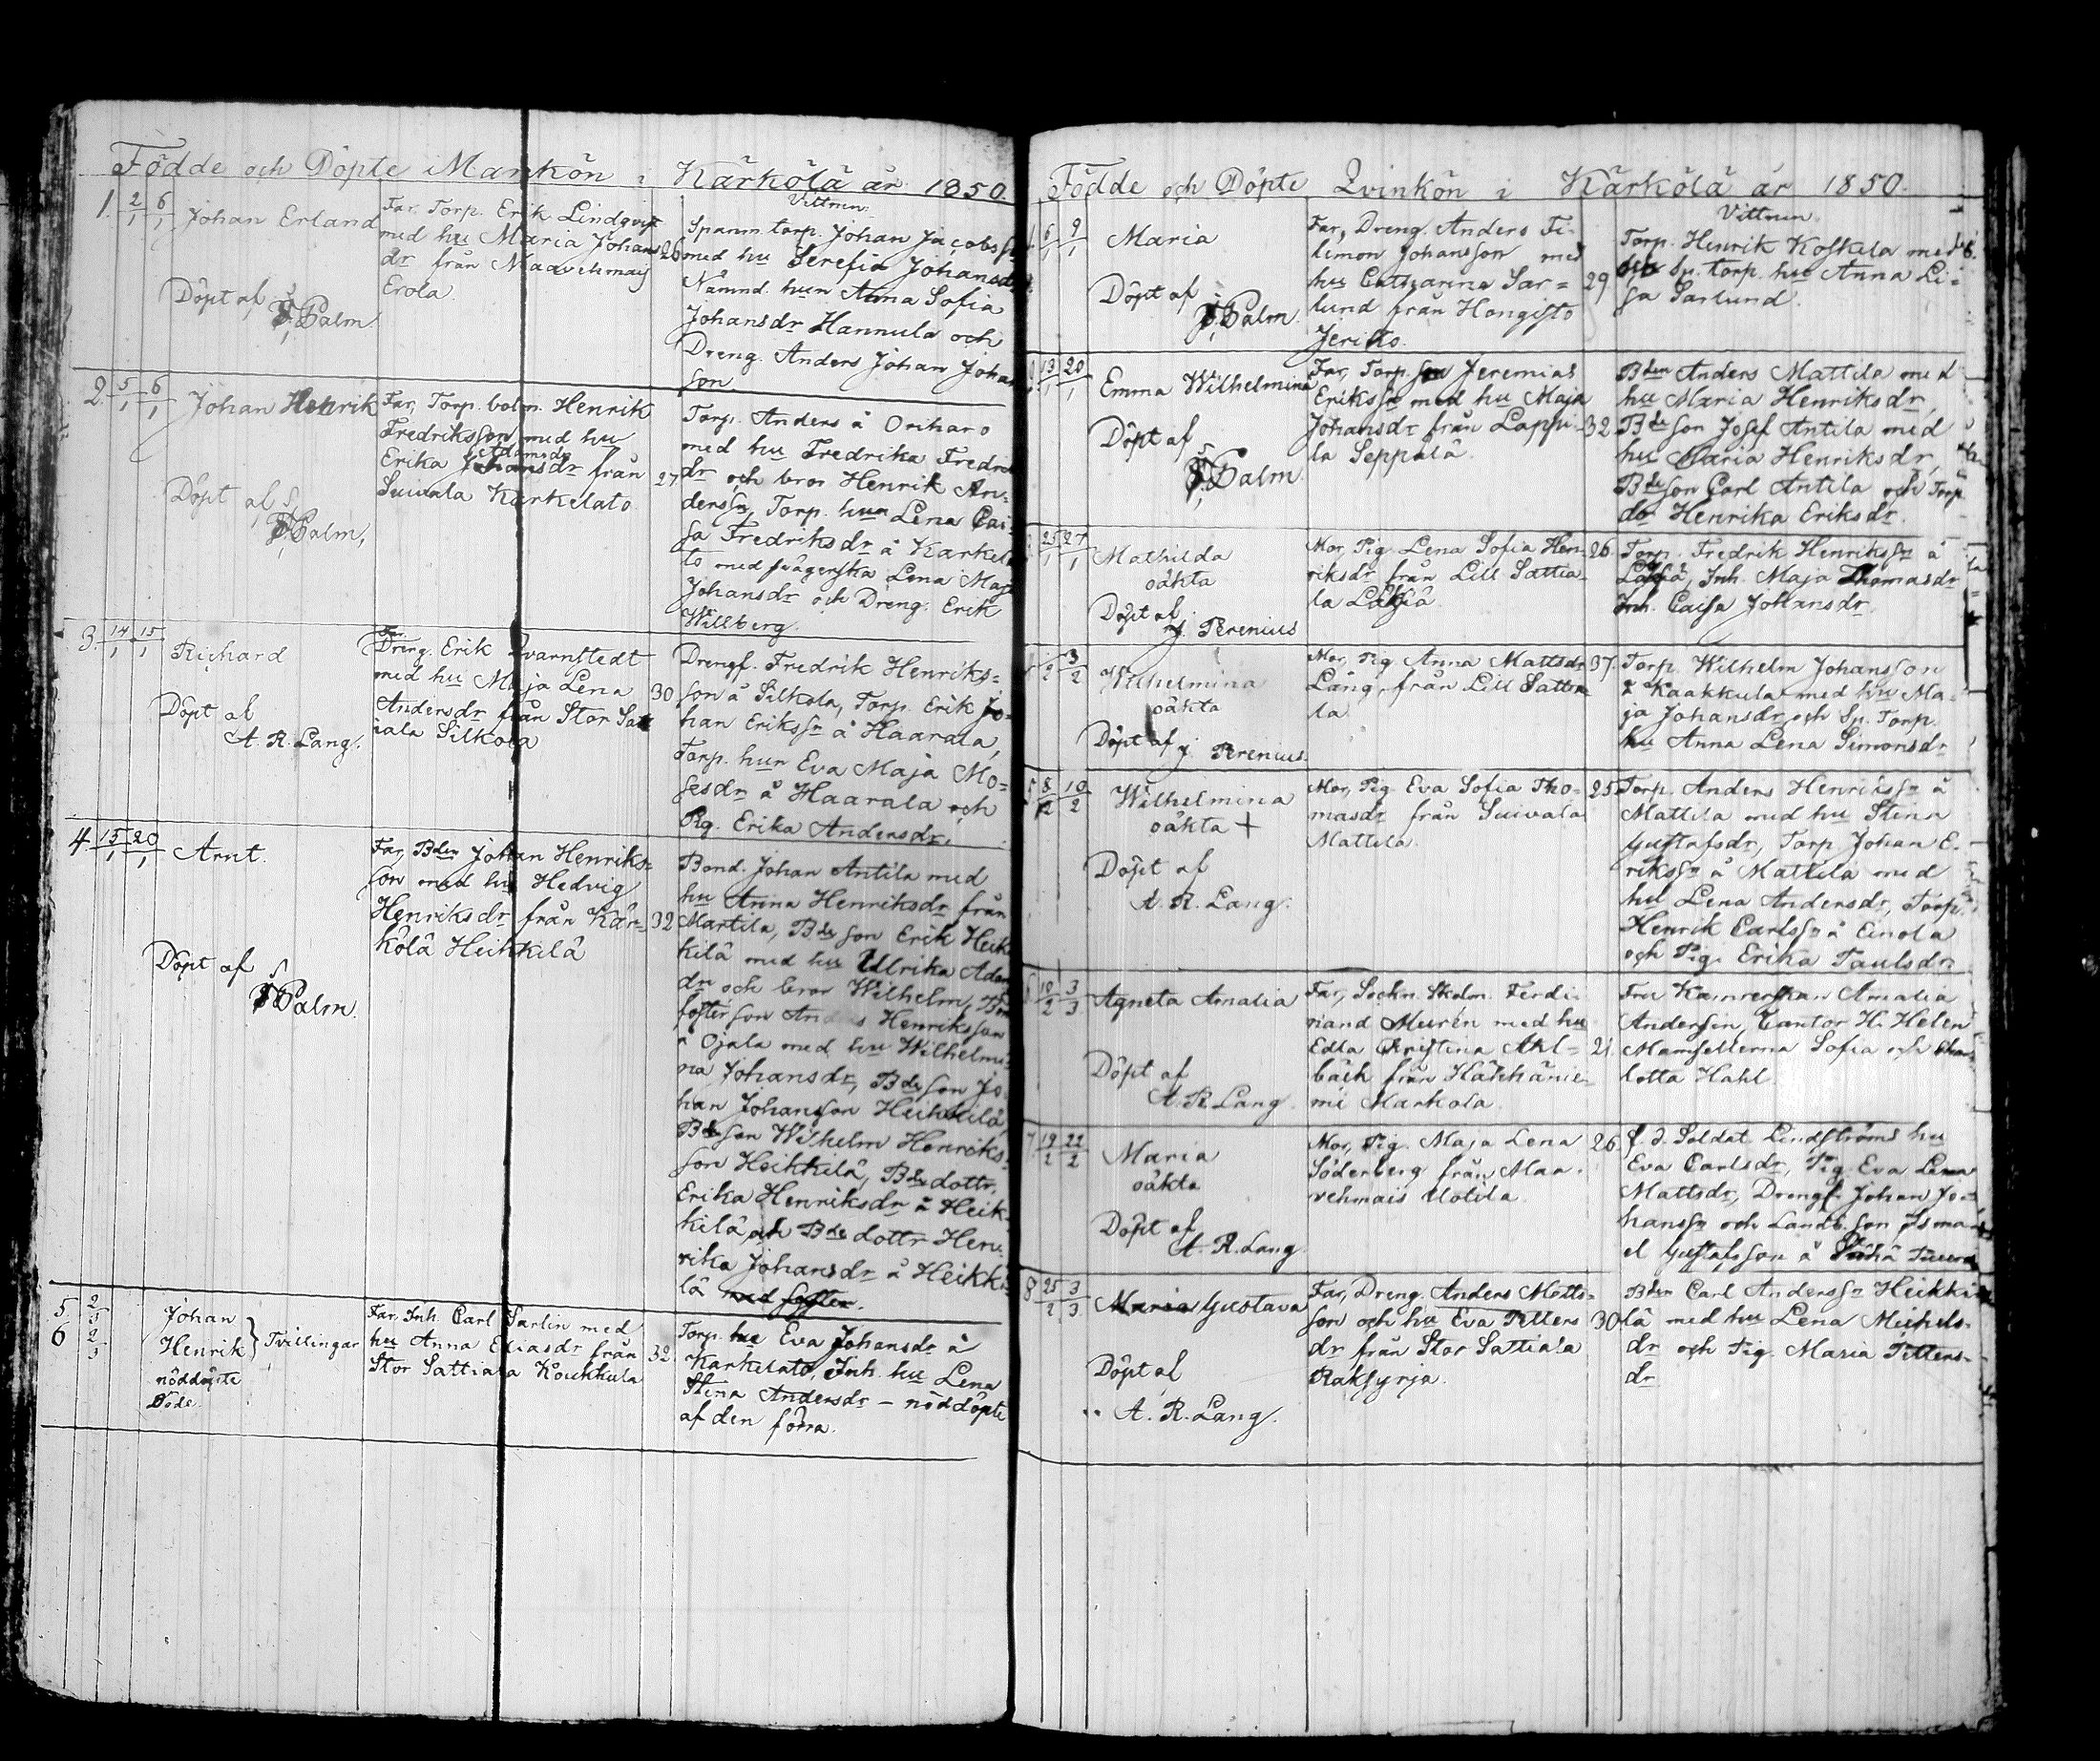 Födde och Döpte i Mankön i Kärkölä år 1850.
Vittnen:
1. 2/1 6/1 Johan Erland
Döpt af
J. Palm.
Far, Torp. Erik Lindqvist
med hu Maria Johans
dr från Maavehmais
Erola.
26
Spanm. torp. Johan Jacobsson
med hu Serefia Johansdr
Nämnd. hun Anna Sofia
Johansdr Hannula och
Dreng. Anders Johan Johan
son
2. 5/1 6/1 Johan Henrik
Döpt af
Palm,
Far, Torp. bolm. Henrik
Fredriksson med hu
Adamsdr
Erika Johansdr från
Suivala Karkelato
27
Torp. Anders å Oriharo
med hu Fredrika Fredriks
dr och bror Henrik An-
derssn, Torp. hun Lena Cai-
sa Fredriksdr å Karkela
to med svägerska Lena Maja
Johansdr och Dreng. Erik
Willberg.
3. 14/1 15/1 Richard
Döpt af
A. R. Lang.
Far.
Dreng. Erik Qvarnstedt
med hu Maja Lena
Andersdr från Stor Satt
iala Silkola
30
Drengf. Fredrik Henriks-
son å Silkola, Torp. Erik Jo-
han Erikssn å Haarala,
Torp. hun Eva Maja Mo-
sesdr å Haarala och
Pig. Erika Andersdr.
4. 15/1 20/1 Arnt.
Döpt af
Palm.
Far, Bden Johan Henriks-
son med hu Hedvig
Henriksdr från Kär-
kölä Heikkilä
32
Bond. Johan Antila med
hu Anna Henriksdr från
Martila, Bde son Erik Heik
kilä med hu Ulrika Adams
dr och bror Wilhelm, Bde
fosterson Anders Henriksson
å Ojala med hu Wilhelmi-
na Johansdr, Bde son Jo
han Johansson Heikkilä,
Bde son Wilhelm Henriks-
son Heikkilä, Bde dottr.
Erika Henriksdr å Heik-
kilä, och Bde dottr Hen-
rika Johansdr å Heikki-
lä med syster.
5 2/3 Johan
6 2/3 Henrik } Tvillingar
nöddöpte
Döde.
Far, Inh. Carl Sarlin med
hu Anna Eliasdr från
Stor Sattiala Koukkula
32.
Torp. hu Eva Johansdr å
Karkelato, Inh. hu Lena
Stina Andersdr – nöddöpte
af den förra.
Födde och Döpte Qvinkön i Kärkölä år 1850.
Vittnen
1. 6/1 9/1 Maria
Döpt af
J. Palm.
Far, Dreng. Anders Fi-
lemon Johansson med
hu Catharina Sar-
lund från Hongisto
Jeriko.
29
Torp. Henrik Koskela med
Sp. torp. hu Anna Li-
sa Sarlund.
13/1 20/1 Emma Wilhelmina
Döpt af
Palm.
Far, Torp. son Jeremias
Erikssn med hu Maja
Johansdr från Lappi-
la Seppälä.
32
Bden Anders Mattila med
hu Maria Henriksdr,
Bde son Josef Antila med
hu Maria Henriksdr,
Bde son Carl Antila och Torp.
dr Henrika Eriksdr.
25/1 27/1 Mathilda
oäkta
Döpt af
J. Perenius
Mor, Pig. Lena Sofia Hen-
riksdr från Lill Sattia-
la
26.
Torp. Fredrik Henrikssn å
Inh. Maja Thomasdr
Inh. Caisa Johansdr.
3/2 Wilhelmina
oäkta
Döpt af J. Perenius.
Mor, Pig. Anna Mattsdr
Lång, från Lill Sattia
la.
37.
Torp. Wilhelm Johansson
å Kaakkula med hu Ma-
ja Johansdr och Sp. Torp.
hu Anna Lena Simonsdr
5 8/2 10/2 Wilhelmina
oäkta +
Döpt af
A. R. Lang.
Mor, Pig. Eva Sofia Tho-
masdr från Suivala
Mattila.
25.
Torp. Anders Henrikssn å
Mattila med hu Stina
Gustafsdr, Torp. Johan E-
rikssn å Mattila med
hu Lena Andersdr, Torp.
Henrik Carlssn å Einola
och Pig. Erika Paulsdr.
6 10/2 3/3 Agneta Amalia
Döpt af
A. R. Lang.
Far, Sockn. Skdm. Ferdi-
nand Meurén med hu
Edla Kristina Ahl-
bäck från Häkkänie-
mi Markola.
21.
Fru Kamrerskan Amalia
Andersin, Cantor H. Helen
Mamsellerna Sofia och Char-
lotta Hahl.
7 19/2 22/2 Maria
oäkta
Döpt af
A. R. Lang.
Mor, Pig. Maja Lena
Söderberg från Maa-
vehmais Uotila.
26.
f. d. Soldat. Lindströms hu
Eva Carlsdr, Pig. Eva Lena
Mattsdr, Drengf. Johan Jo-
hanssn och Landb. son Isma-
el Gustafsson å
8 25/2 3/3 Maria Gustava
Döpt af
A. R. Lang.
Far, Dreng. Anders Matts-
son och hu Eva Petters
dr från Stor Sattiala
Raksyrjä.
30
Bden Carl Anderssn Heikki
lä med hu Lena Michels-
dr och Pig. Maria Petters-
dr